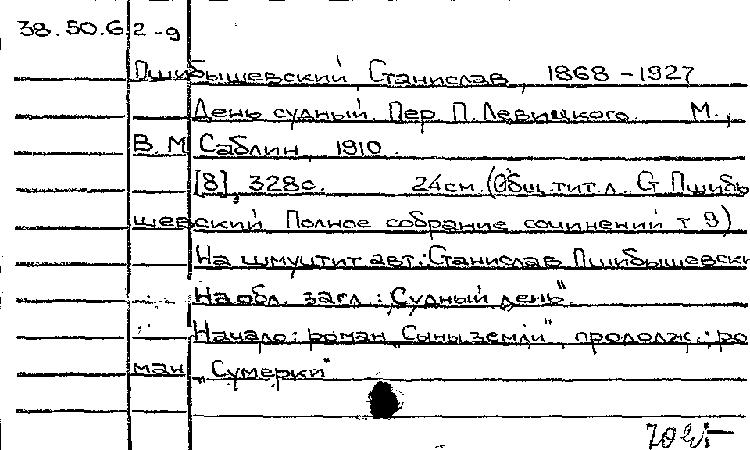 38.50.6 2-9
Пшибышевский, Станислав, 1868-1927
День судный. Пер. П. Левицкого. М.,
В. М. Саблин, 1910.
[8], 328с. 24см. (Общ. тит. л. Ст. Пшибы-
шевский Полное собрание сочинений т 9)
На шмуцтит авт.: Станислав Пшибышевски
На обл. загл.: „Судный день".
Начало: роман „Сыны земли", продолж.: ро
ман „Сумерки"